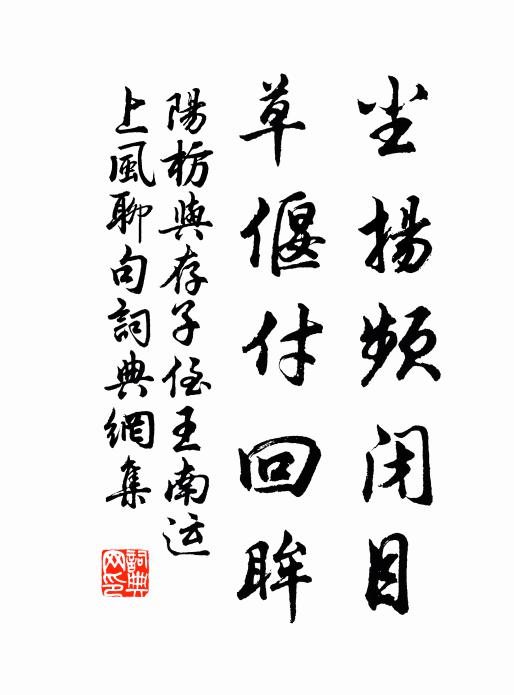 尘揚頻闭目
草偃付回眸
陽枋與存子侄王南运
上風聊句詞典網集
詞典网印